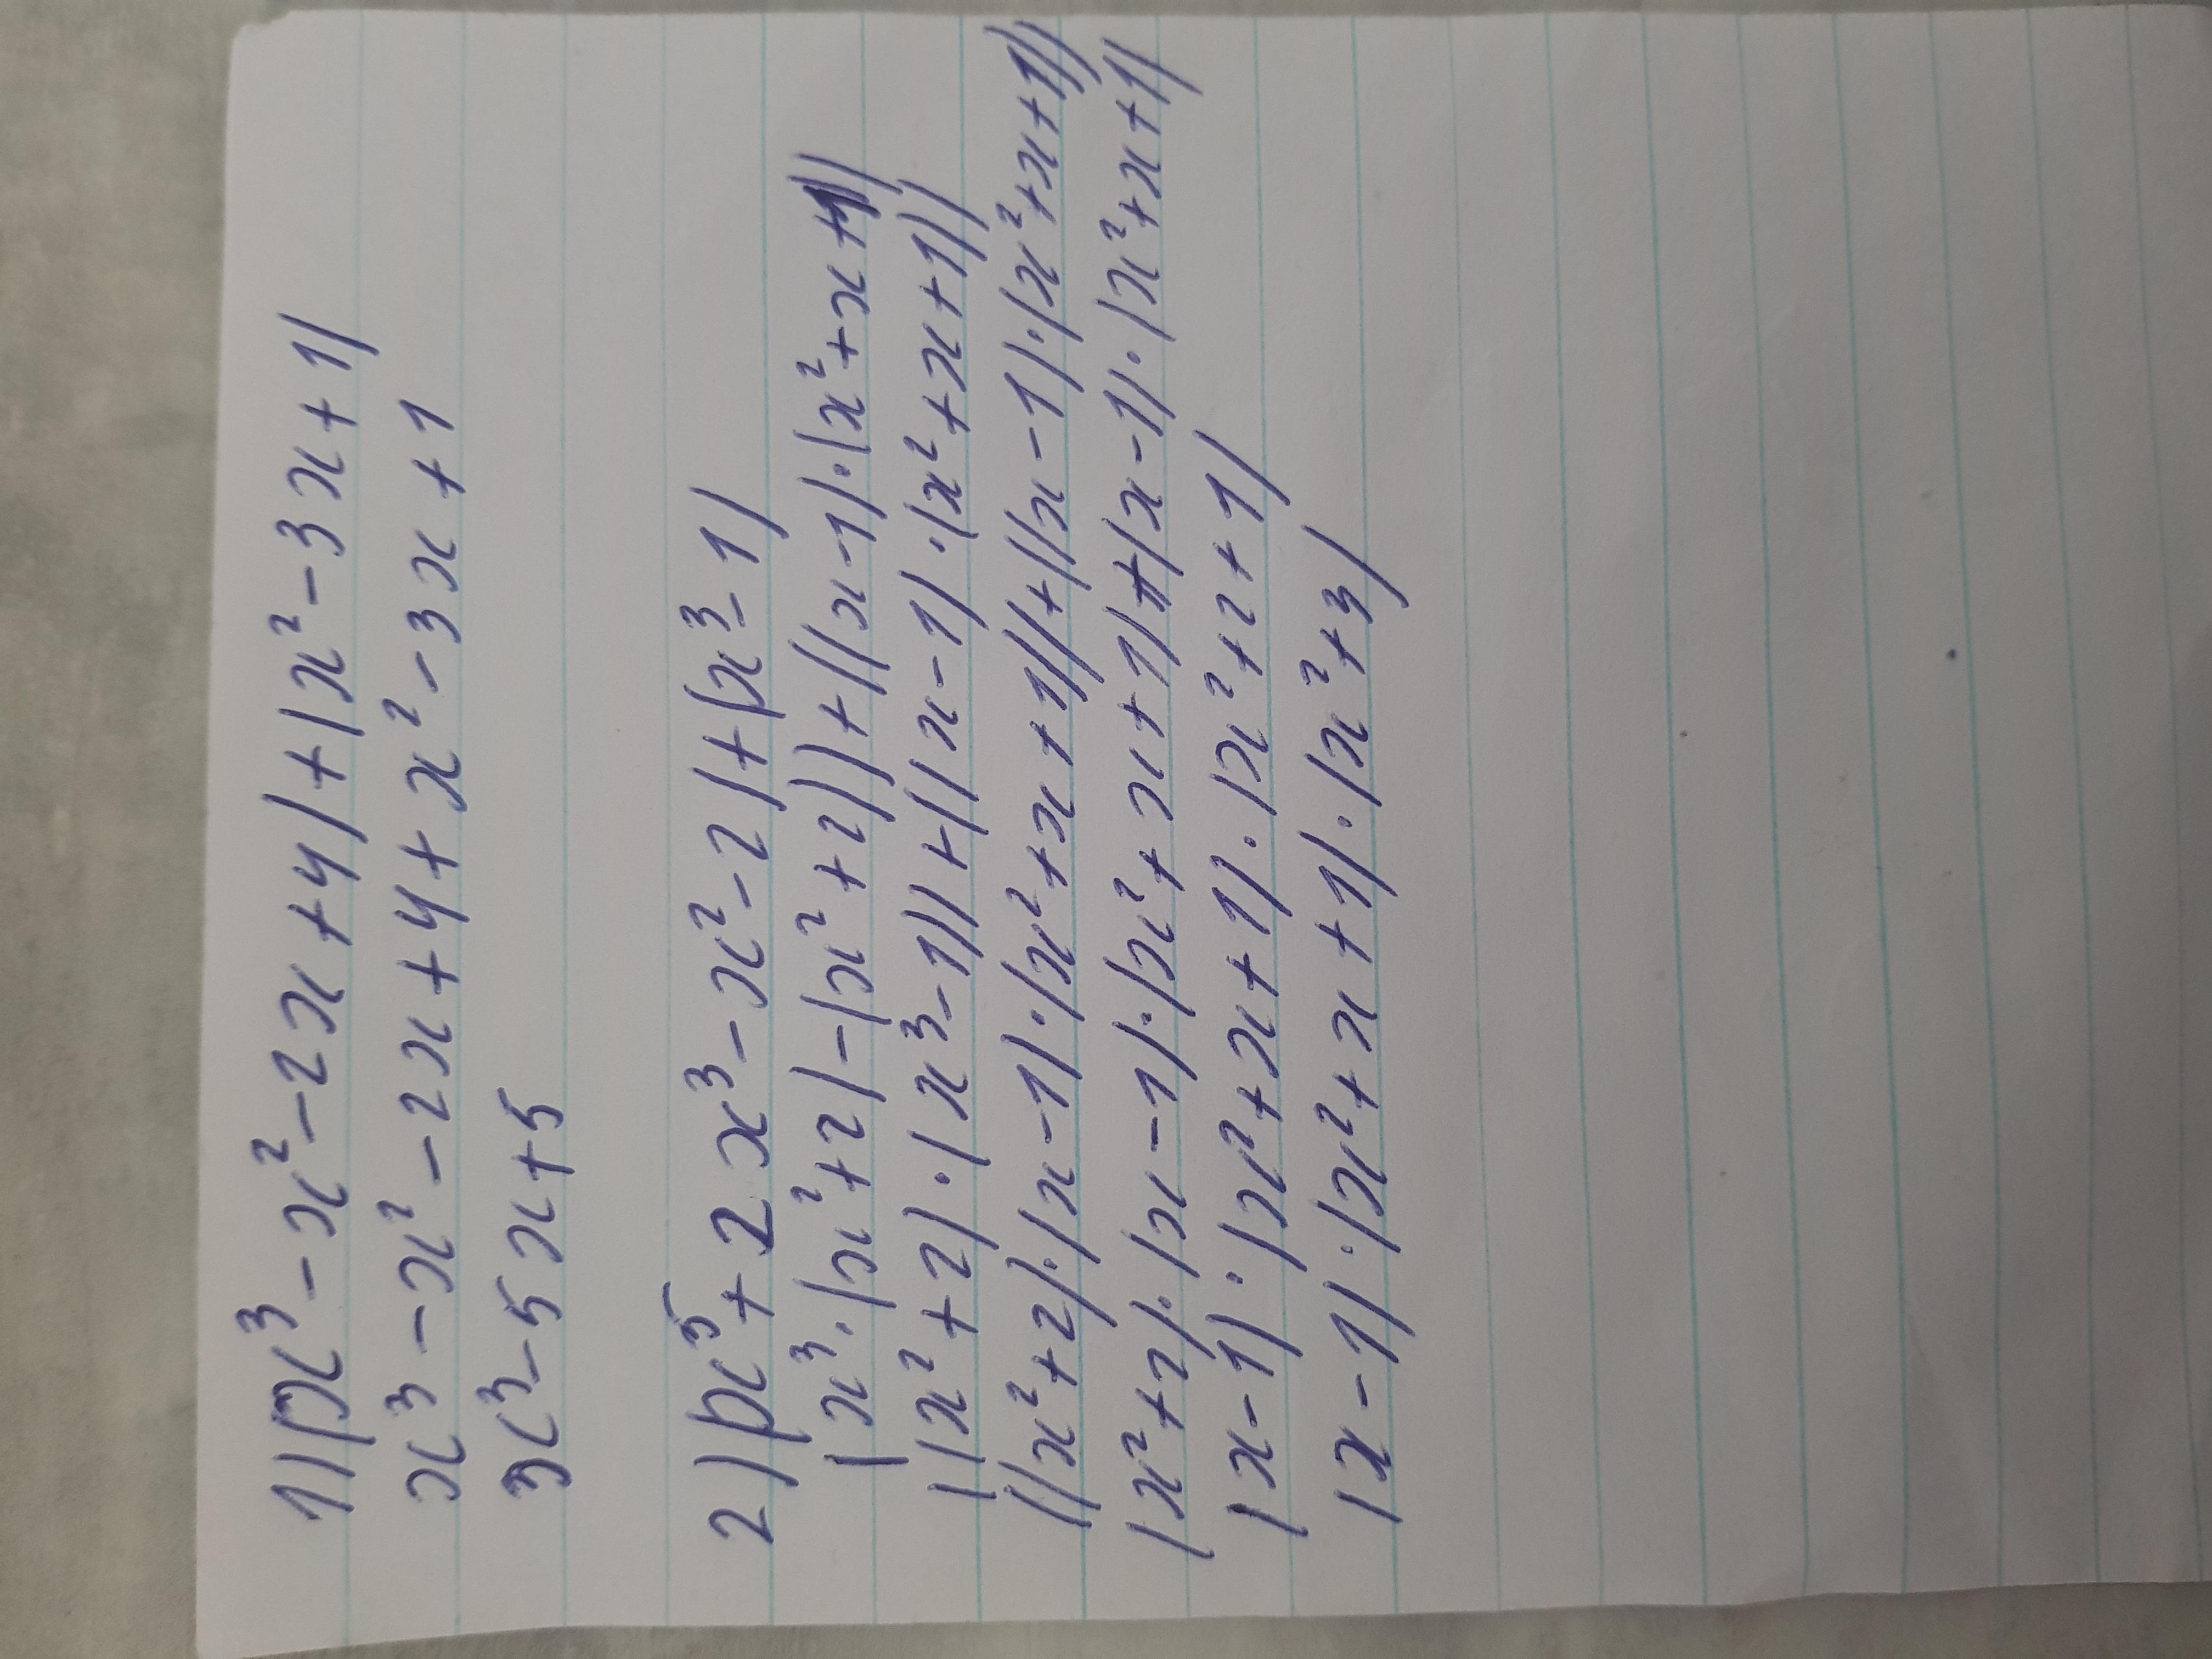 1)(x³-x²-2x+4)+(x²-3x+1)
x³-x²-2x+4+x²-3x+1
x³-5x+5
2)(x⁵+2x³-x²-2)+(x³-1)
(x³·(x²+2)-(x²+2))+((x-1)·(x²+x+1))
((x²+2)·(x³-1))+((x-1)·(x²+x+1))
((x²+2)·(x-1)·(x²+x+1))+((x-1)·(x²+x+1))
(x²+2)·(x-1)·(x²+x+1)+(x-1)·(x²+x+1)
(x-1)·(x²+x+1)·(x²+2+1)
(x-1)·(x²+x+1)·(x²+3)